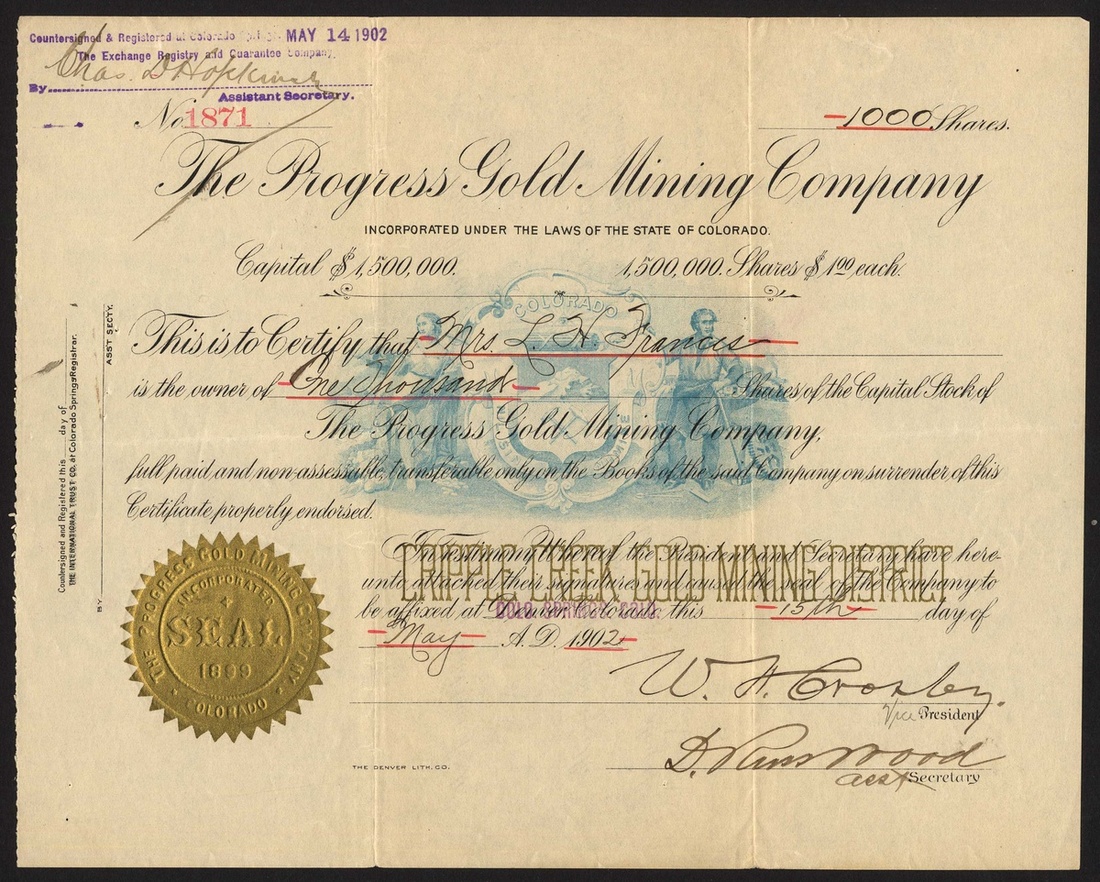 Countersigned & Registered at Colorado Springs MAY 14 1902
The Exchange Registry and Guarantee Company.
By Chas. D Hopkins
Assistant Secretary.
No. 1871
1000 Shares.
The Progress Gold Mining Company
INCORPORATED UNDER THE LAWS OF THE STATE OF COLORADO.
Capital $1,500,000. 1,500,000. Shares $1.00 each.
COLORADO
This is to Certify that Mrs. L H Francis
is the owner of One Thousand Shares of the Capital Stock of
The Progress Gold Mining Company,
full paid and non-assessable, transferable only on the Books of the said Company on surrender of this
Certificate properly endorsed.
In Testimony Whereof the President and Secretary have here-
unto attached their signatures and caused the seal of the Company to
be affixed at Denver, Colorado this 15th day of
May A.D. 1902
CRIPPLE CREEK GOLD MINING DISTRICT
COLO. SPRINGS, COLO.
W. H. Crosley.
Vice President
Wood
asst Secretary
THE DENVER LITH. CO.
THE PROGRESS GOLD MINING
INCORPORATED
SEAL
1899
COLORADO
Countersigned and Registered this day of
THE INTERNATIONAL TRUST CO. at Colorado Springs Registrar.
BY ASST SECTY.